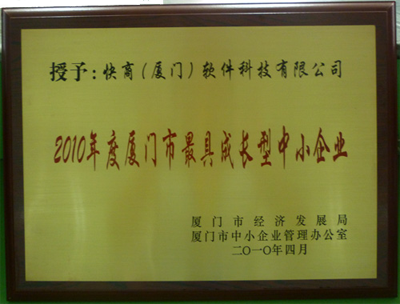 授予：快商（厦门）软件科技有限公司
2010年度厦门市最具成长型中小企业
厦门市经济发展局
厦门市中小企业管理办公室
二〇一〇年四月